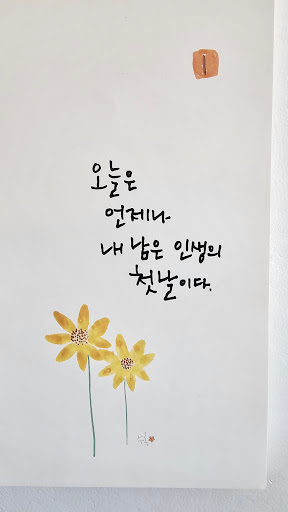 오늘은
언제나
내 남은 인생의
첫날이다.